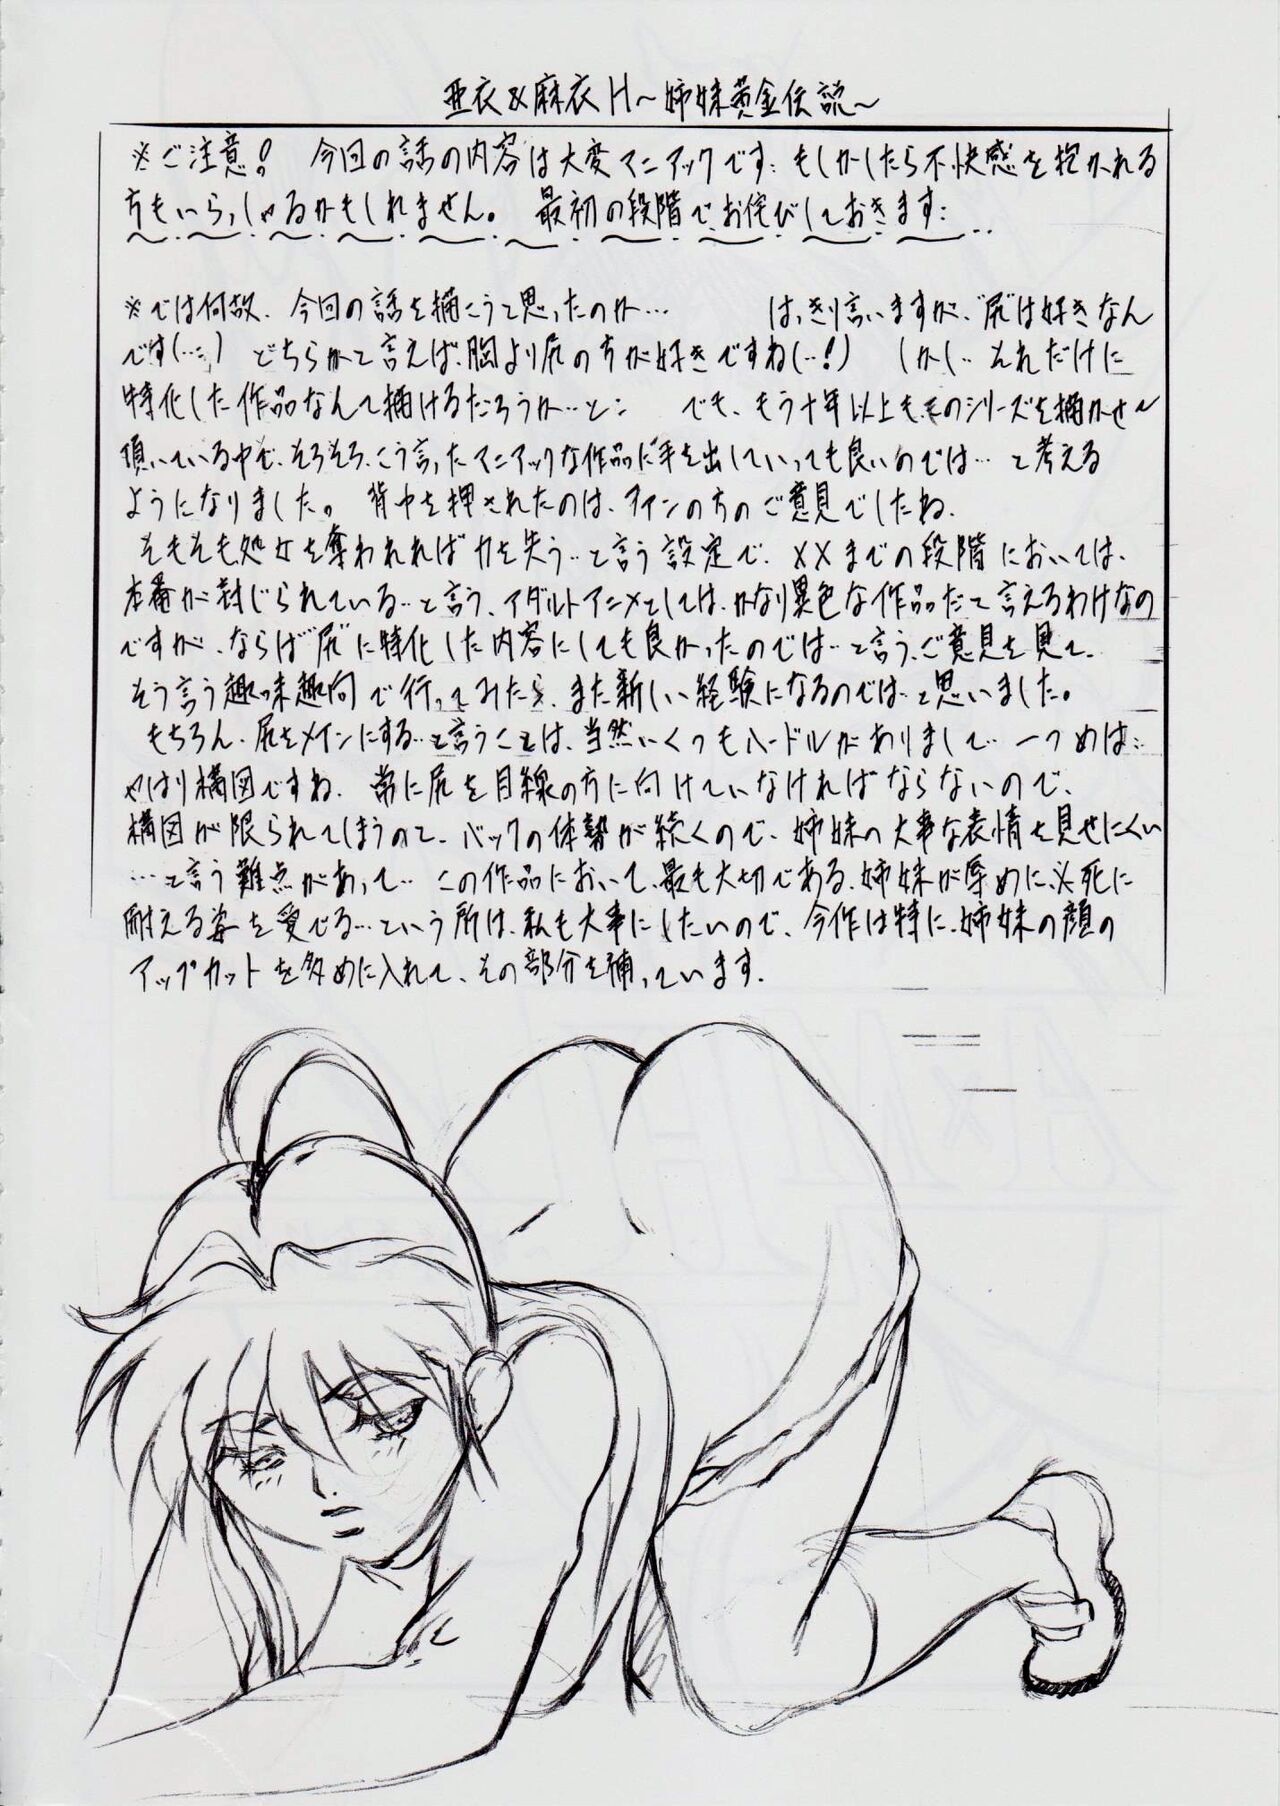 亜衣&麻衣H～姉妹黄金伝説～
※ご注意! 今回の話の内容は大変マニアックです… もしかしたら不快感を抱かれる
方もいらっしゃるかもしれません。 最初の段階でお詫びしておきます…
※では何故、今回の話を描こうと思ったのか… はっきり言いますが、"尻"は好きなん
です(…) どちらかと言えば、胸より尻の方が好きですね(…!) しかし… それだけに
特化した作品なんて描けるだろうか…と… でも、もう十年以上もこのシリーズを描かせて
頂いている中で、そろそろ、こう言ったマニアックな作品に手を出していっても良いのでは…と考える
ようになりました。 背中を押されたのは、ファンの方のご意見でしたね。
そもそも処女を奪われれば力を失う…と言う設定で、××までの段階においては、
本番が封じられている…と言う、アダルトアニメとしては、かなり異色な作品だと言えるわけなの
ですが、ならば"尻"に特化した内容にしても良かったのでは…と言う、ご意見を見て、
そう言う趣味趣向で行ってみたら、また新しい経験になるのでは…と思いました。
もちろん、尻をメインにする…と言うことは、当然いくつもハードルがありまして… 一つめは…
やはり構図ですね。 常に尻を目線の方に向けていなければならないので、
構図が限られてしまうのと、バックの体勢が続くので、姉妹の大事な表情を見せにくい
…と言う難点があって… この作品において、最も大切である、姉妹が辱めに、必死に
耐える姿を愛でる…という所は、私も大事にしたいので、今作は特に、姉妹の顔の
アップカットを多めに入れて、その部分を補っています。